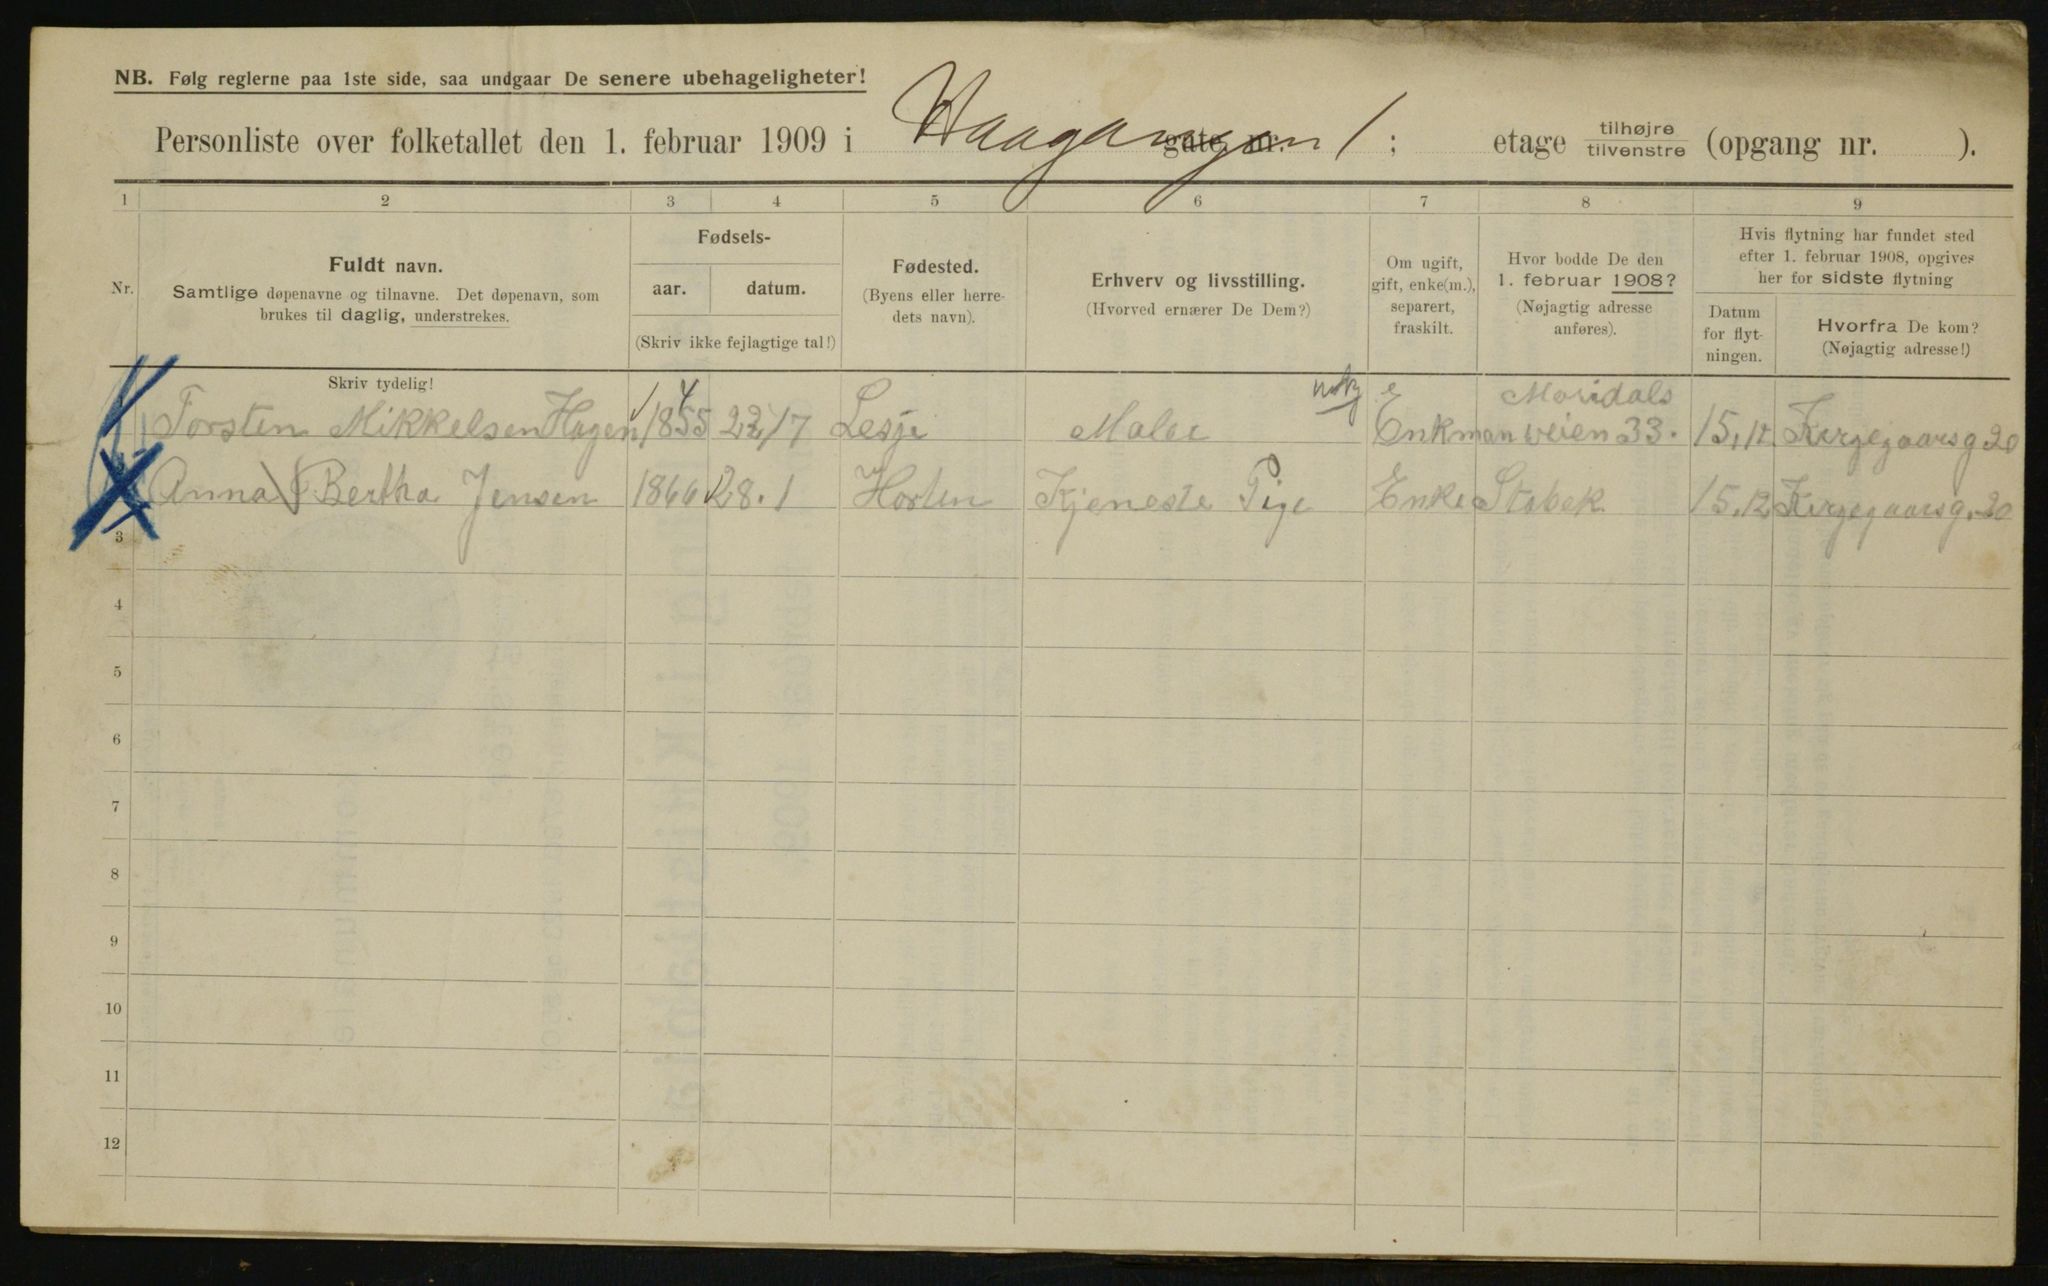 NB. Følg reglerne paa 1ste side, saa undgaar De senere ubehageligheter!
Personliste over folketallet den 1. februar 1909 i gate nr. 1 ; etage tilhøjre tilvenstre (opgang nr. ).
1 2 3 4 5 6 7 8 9
Nr.
Fuldt navn.
Samtlige døpenavne og tilnavne. Det døpenavn, som
brukes til daglig, understrekes.
Fødsels-
aar. datum.
(Skriv ikke fejlagtige tal!)
Fødested.
(Byens eller herre-
dets navn).
Erhverv og livsstilling.
(Hvorved ernærer De Dem?)
Om ugift,
gift, enke(m.),
separert,
fraskilt.
Hvor bodde De den
1. februar 1908?
(Nøjagtig adresse
anføres).
Hvis flytning har fundet sted
efter 1. februar 1908, opgives
her for sidste flytning
Datum
for flyt-
ningen.
Hvorfra De kom?
(Nøjagtig adresse!)
Skriv tydelig!
Torsten Mikkelsen Hagen 1855 4 22/7 Lesje Maler e Enkman Maridals veien 33. 15.12 Kirgegaarsg 20
Anna Bertha Jensen 1866 28.1 Horten Tjeneste Pige Enke Stabek 15.12 Kirgegaarsg. 20
3
4
5
6
7
8
9
10
11
12